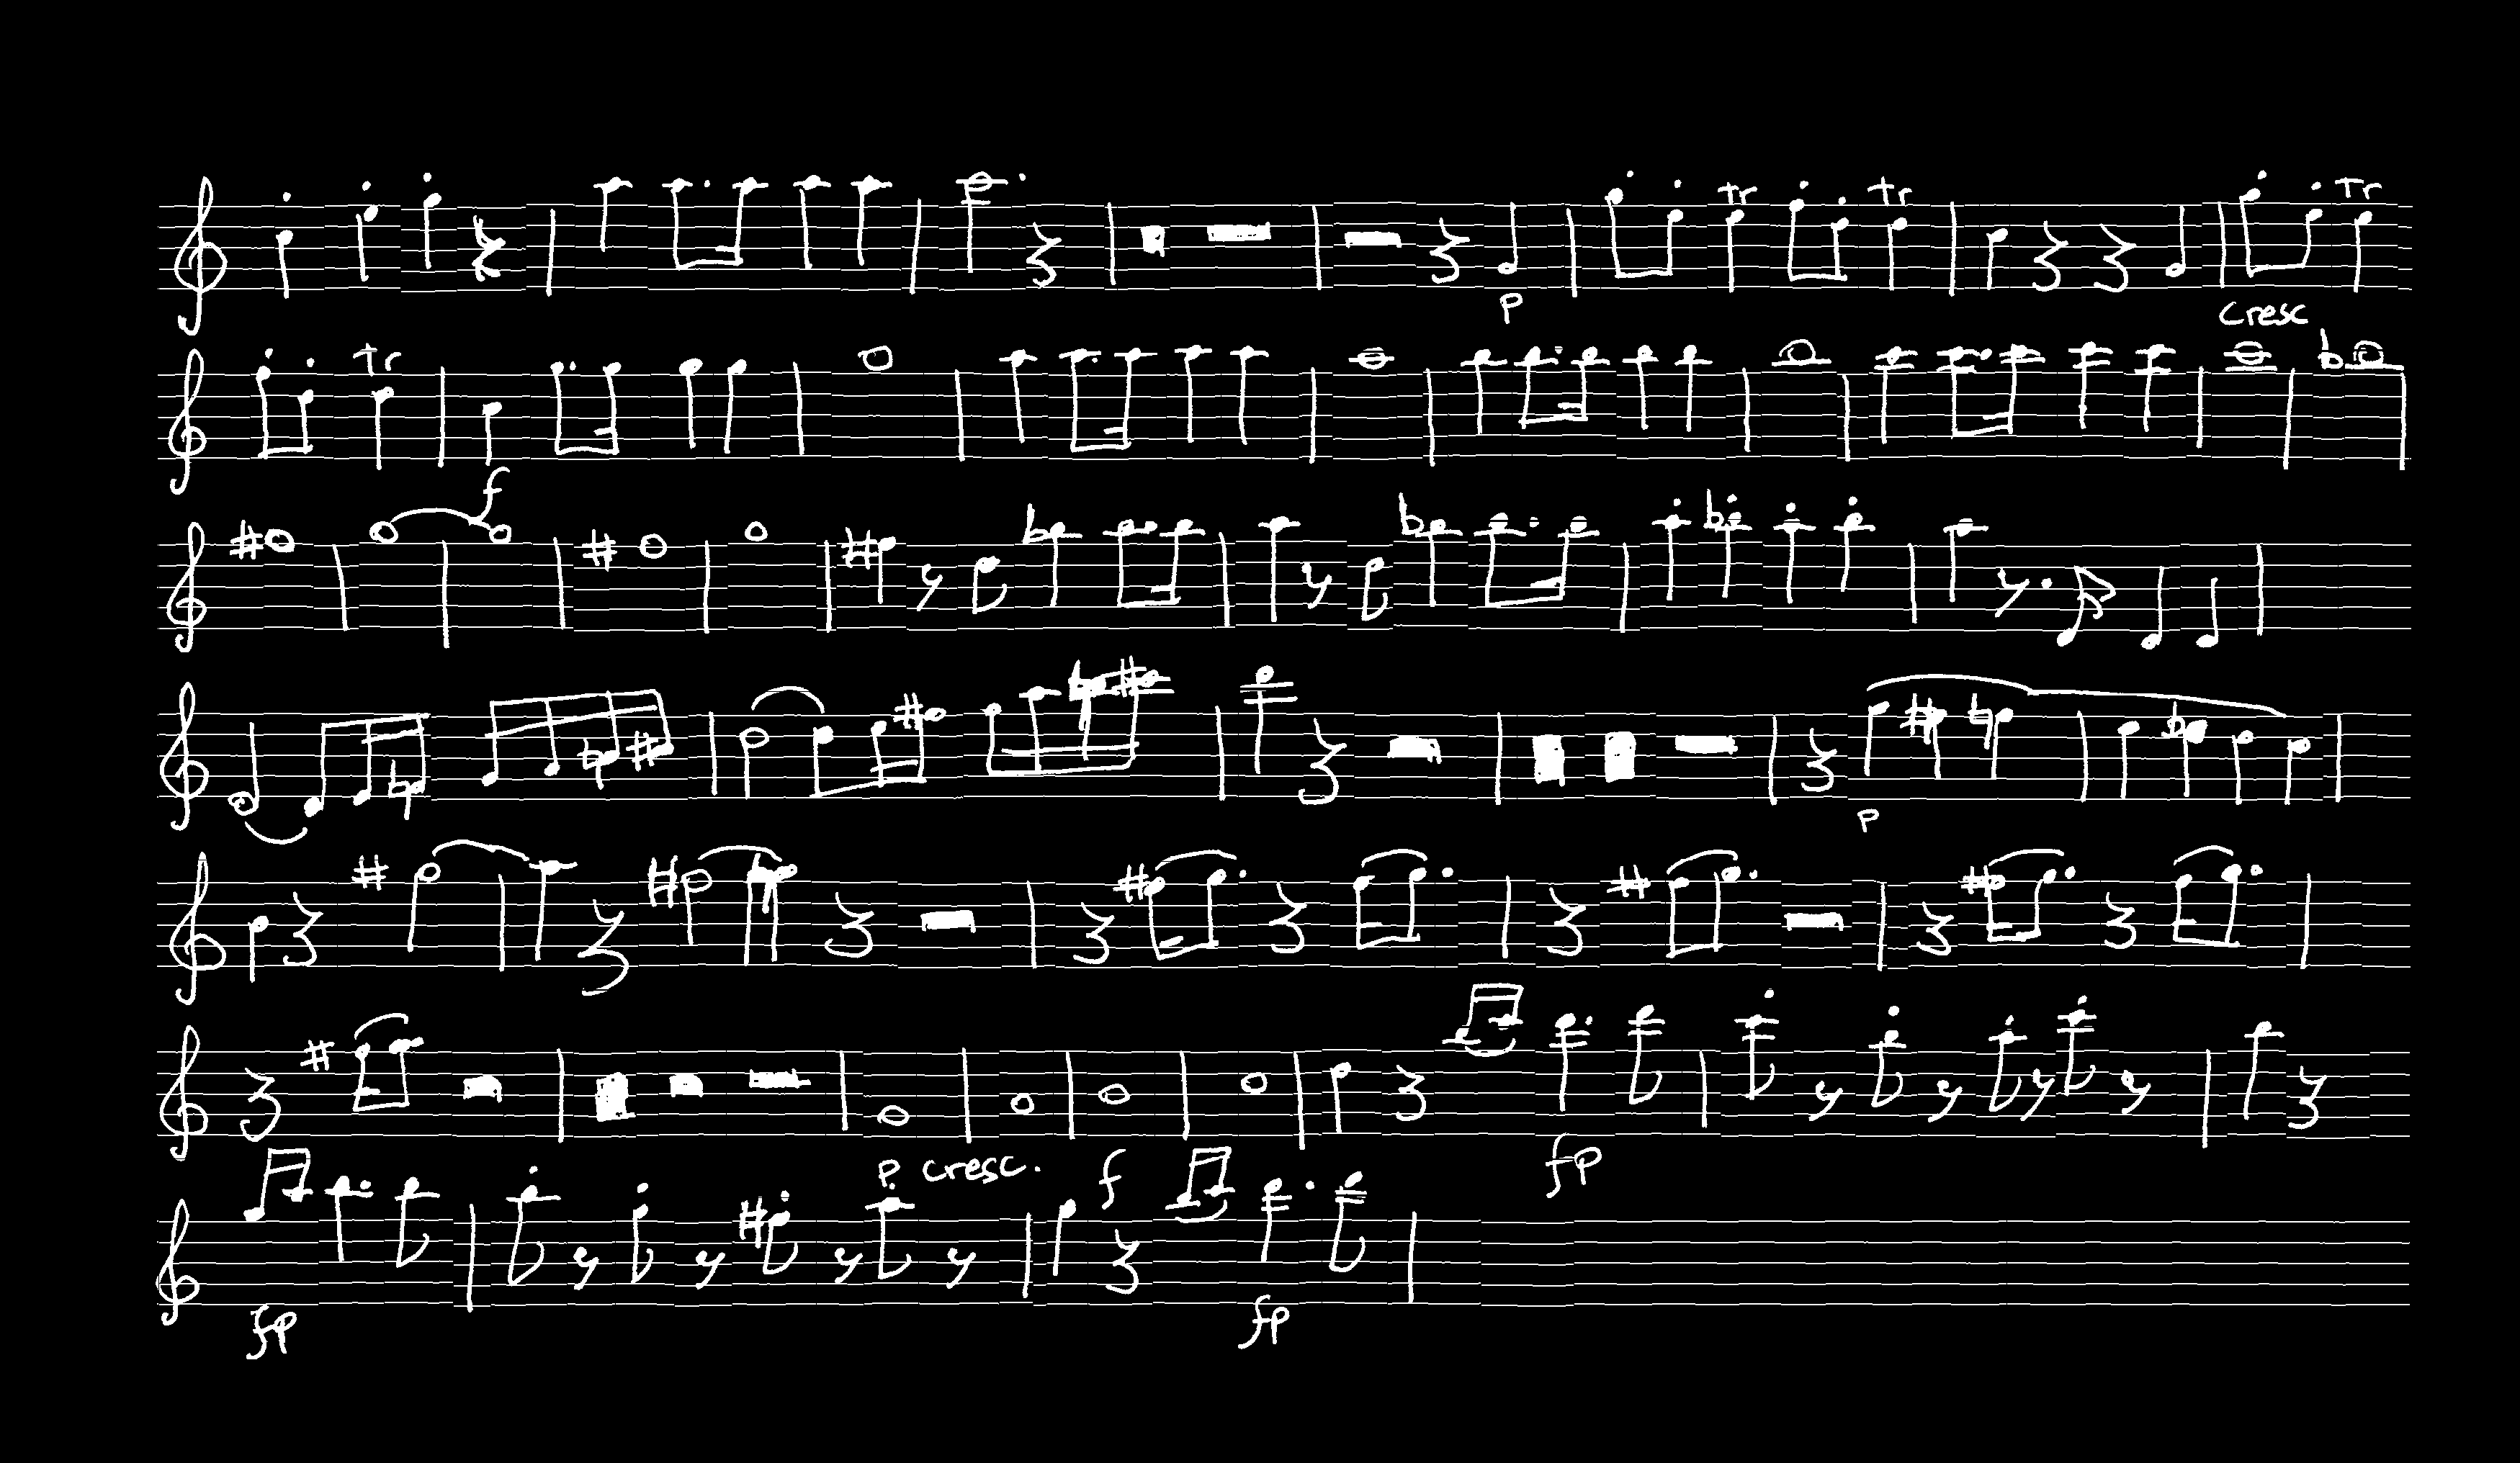 Tr Tr Tr
p cresc
Tr
f
p
fp
p cresc. f
fp fp